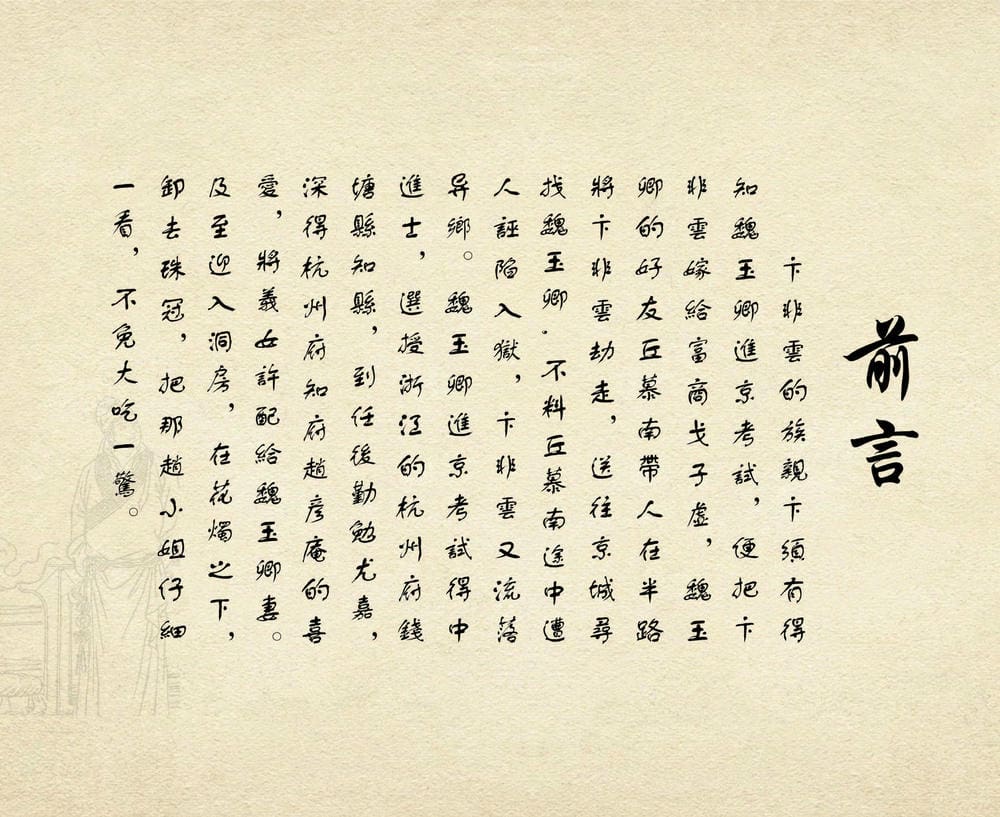 前言
卞非雲的族親卞須有得
知魏玉卿進京考試，便把卞
非雲嫁給富商戈子虛，魏玉
卿的好友丘慕南帶人在半路
將卞非雲劫走，送往京城尋
找魏玉卿．不料丘慕南途中遭
人誣陷入獄，卞非雲又流落
异鄉。魏玉卿進京考試得中
進士，選授浙江的杭州府錢
塘縣知縣，到任後勤勉尤嘉，
深得杭州府知府趙彦庵的喜
愛，將義女許配給魏玉卿妻。
及至迎入洞房，在花燭之下，
卸去珠冠，把那趙小姐仔細
一看，不免大吃一驚。